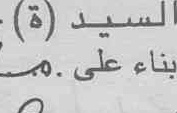 السيد (ة)
بناء على